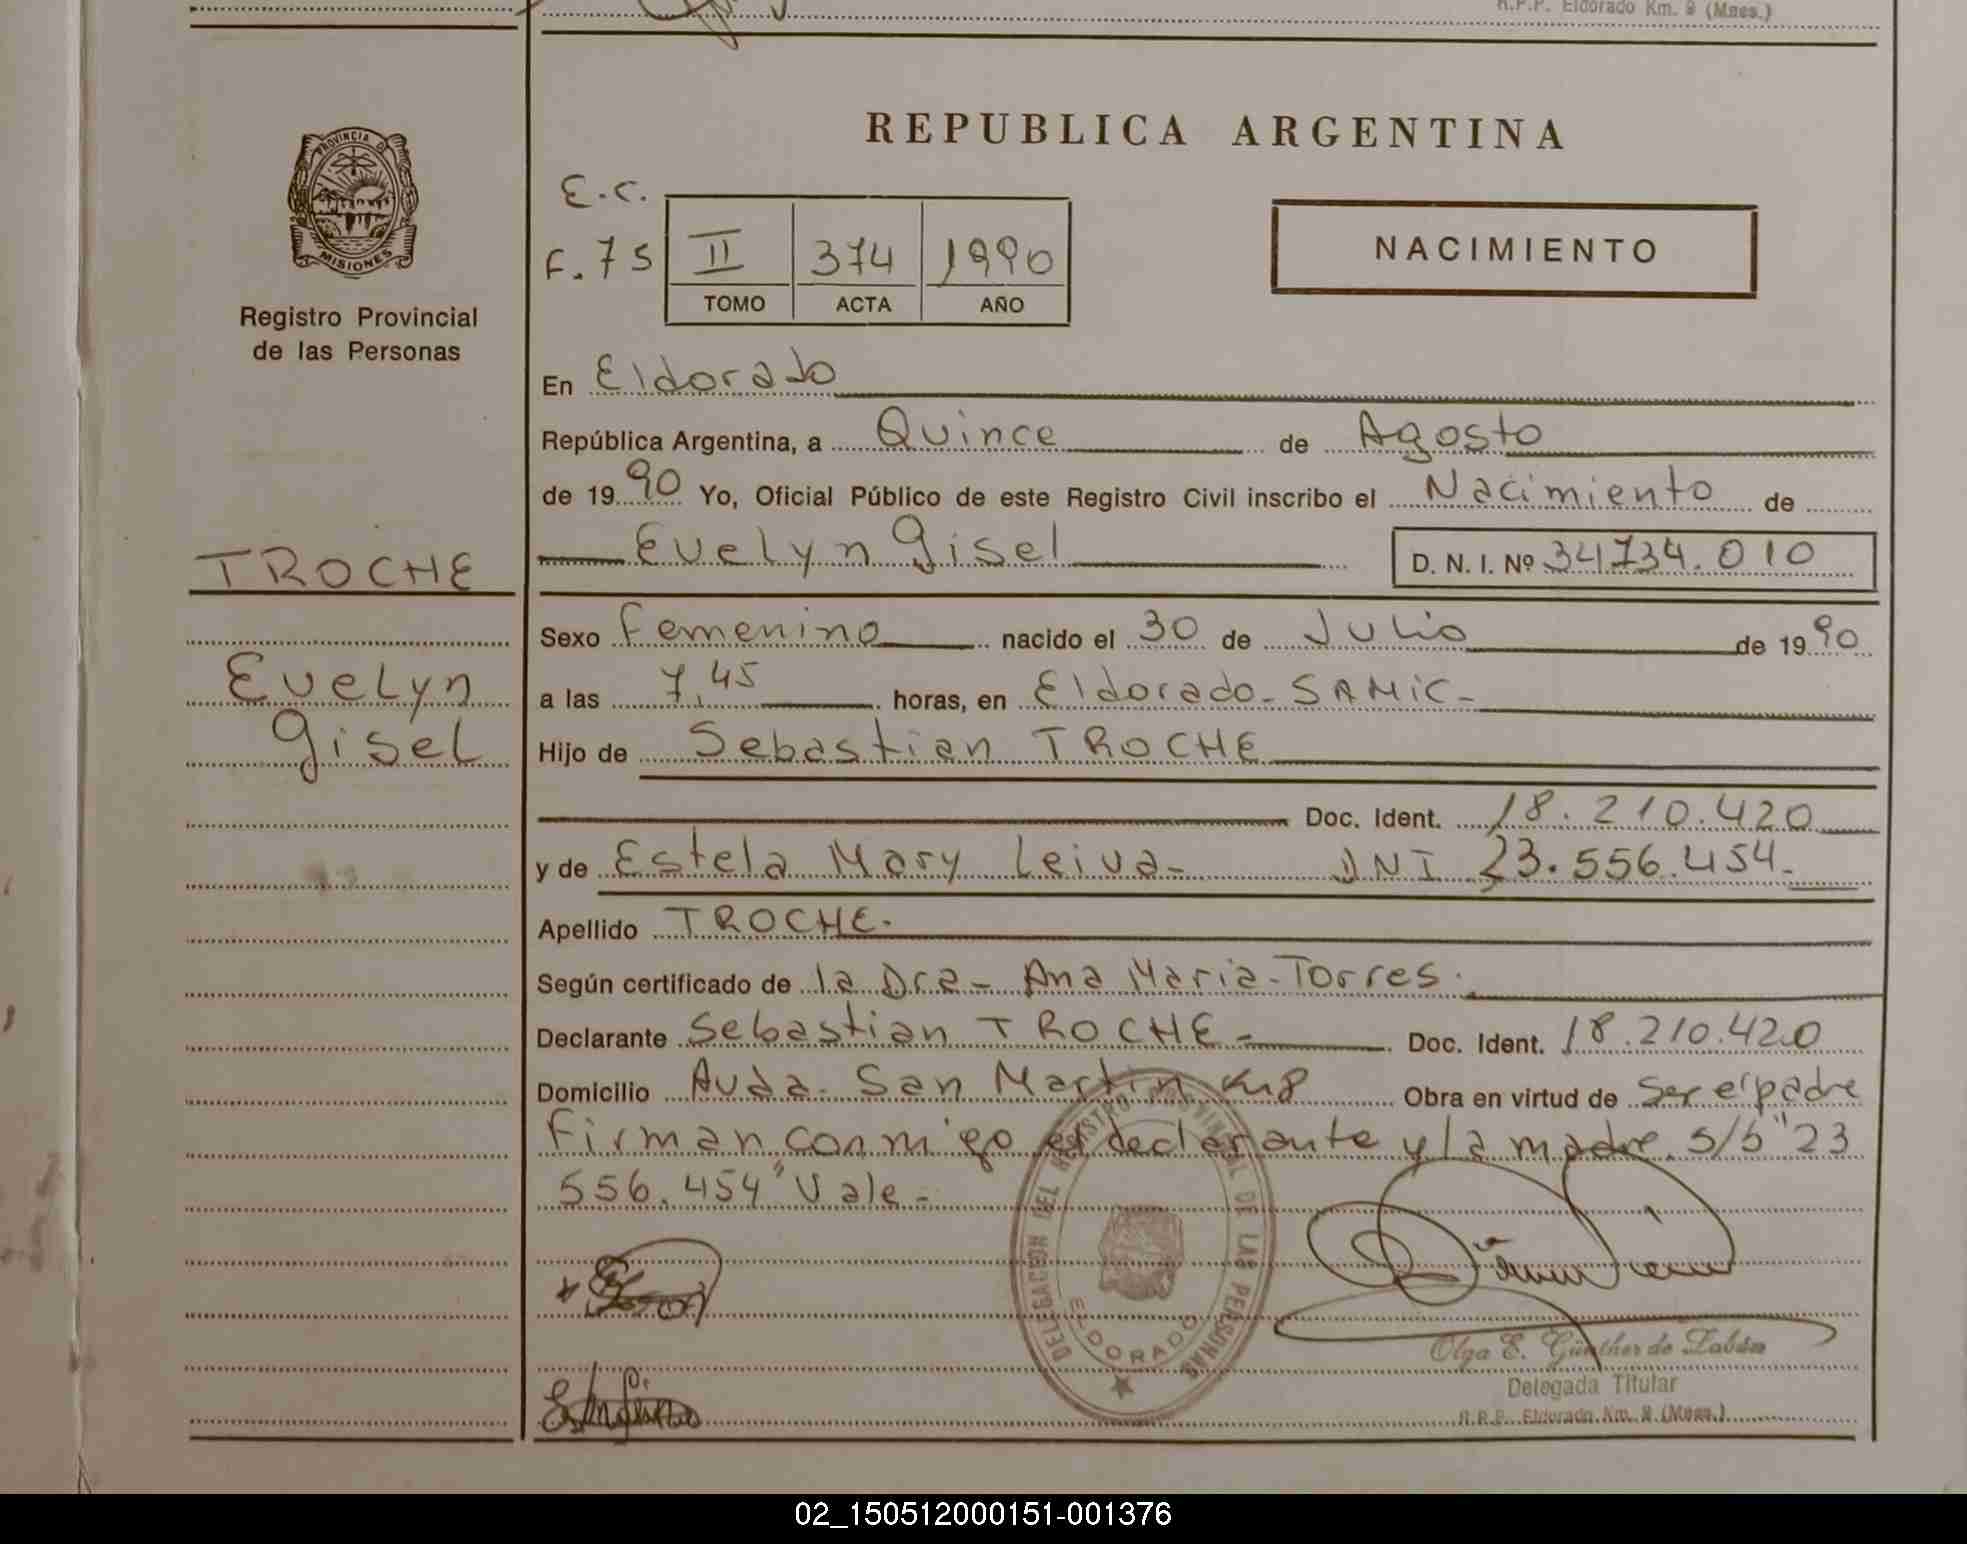 R.P.P. Eldorado Km. 9 (Mnes.)
REPUBLICA ARGENTINA
PROVINCIA DE
MISIONES
Registro Provincial
de las Personas
E.C.
F. 75
II 374 1990
TOMO ACTA AÑO
NACIMIENTO
En Eldorado
República Argentina, a Quince de Agosto
de 1990 Yo, Oficial Público de este Registro Civil inscribo el Nacimiento de
Evelyn Gisel D. N. I. Nº 34734.010
TROCHE
Evelyn
Gisel
Sexo Femenino nacido el 30 de Julio de 1990
a las 7,45 horas, en Eldorado - SAMiC -
Hijo de Sebastian TROCHE
Doc. Ident. 18.210.420
y de Estela Mary Leiva - DNI 23.556.454 -
Apellido TROCHE.
Según certificado de la Dra - Ana Maria - Torres.
Declarante Sebastian TROCHE - Doc. Ident. 18.210.420
Domicilio Avda. San Martin Km8 Obra en virtud de Ser el padre
Firman conmigo el declarante y la madre. S/b "23
556.454" Vale -
DELEGACION DEL REGISTRO PROVINCIAL DE LAS PERSONAS
ELDORADO
Olga E. Günther de
Delegada Titular
R.P.P. Eldorado Km. 9 (Mnes.)
02_150512000151-001376